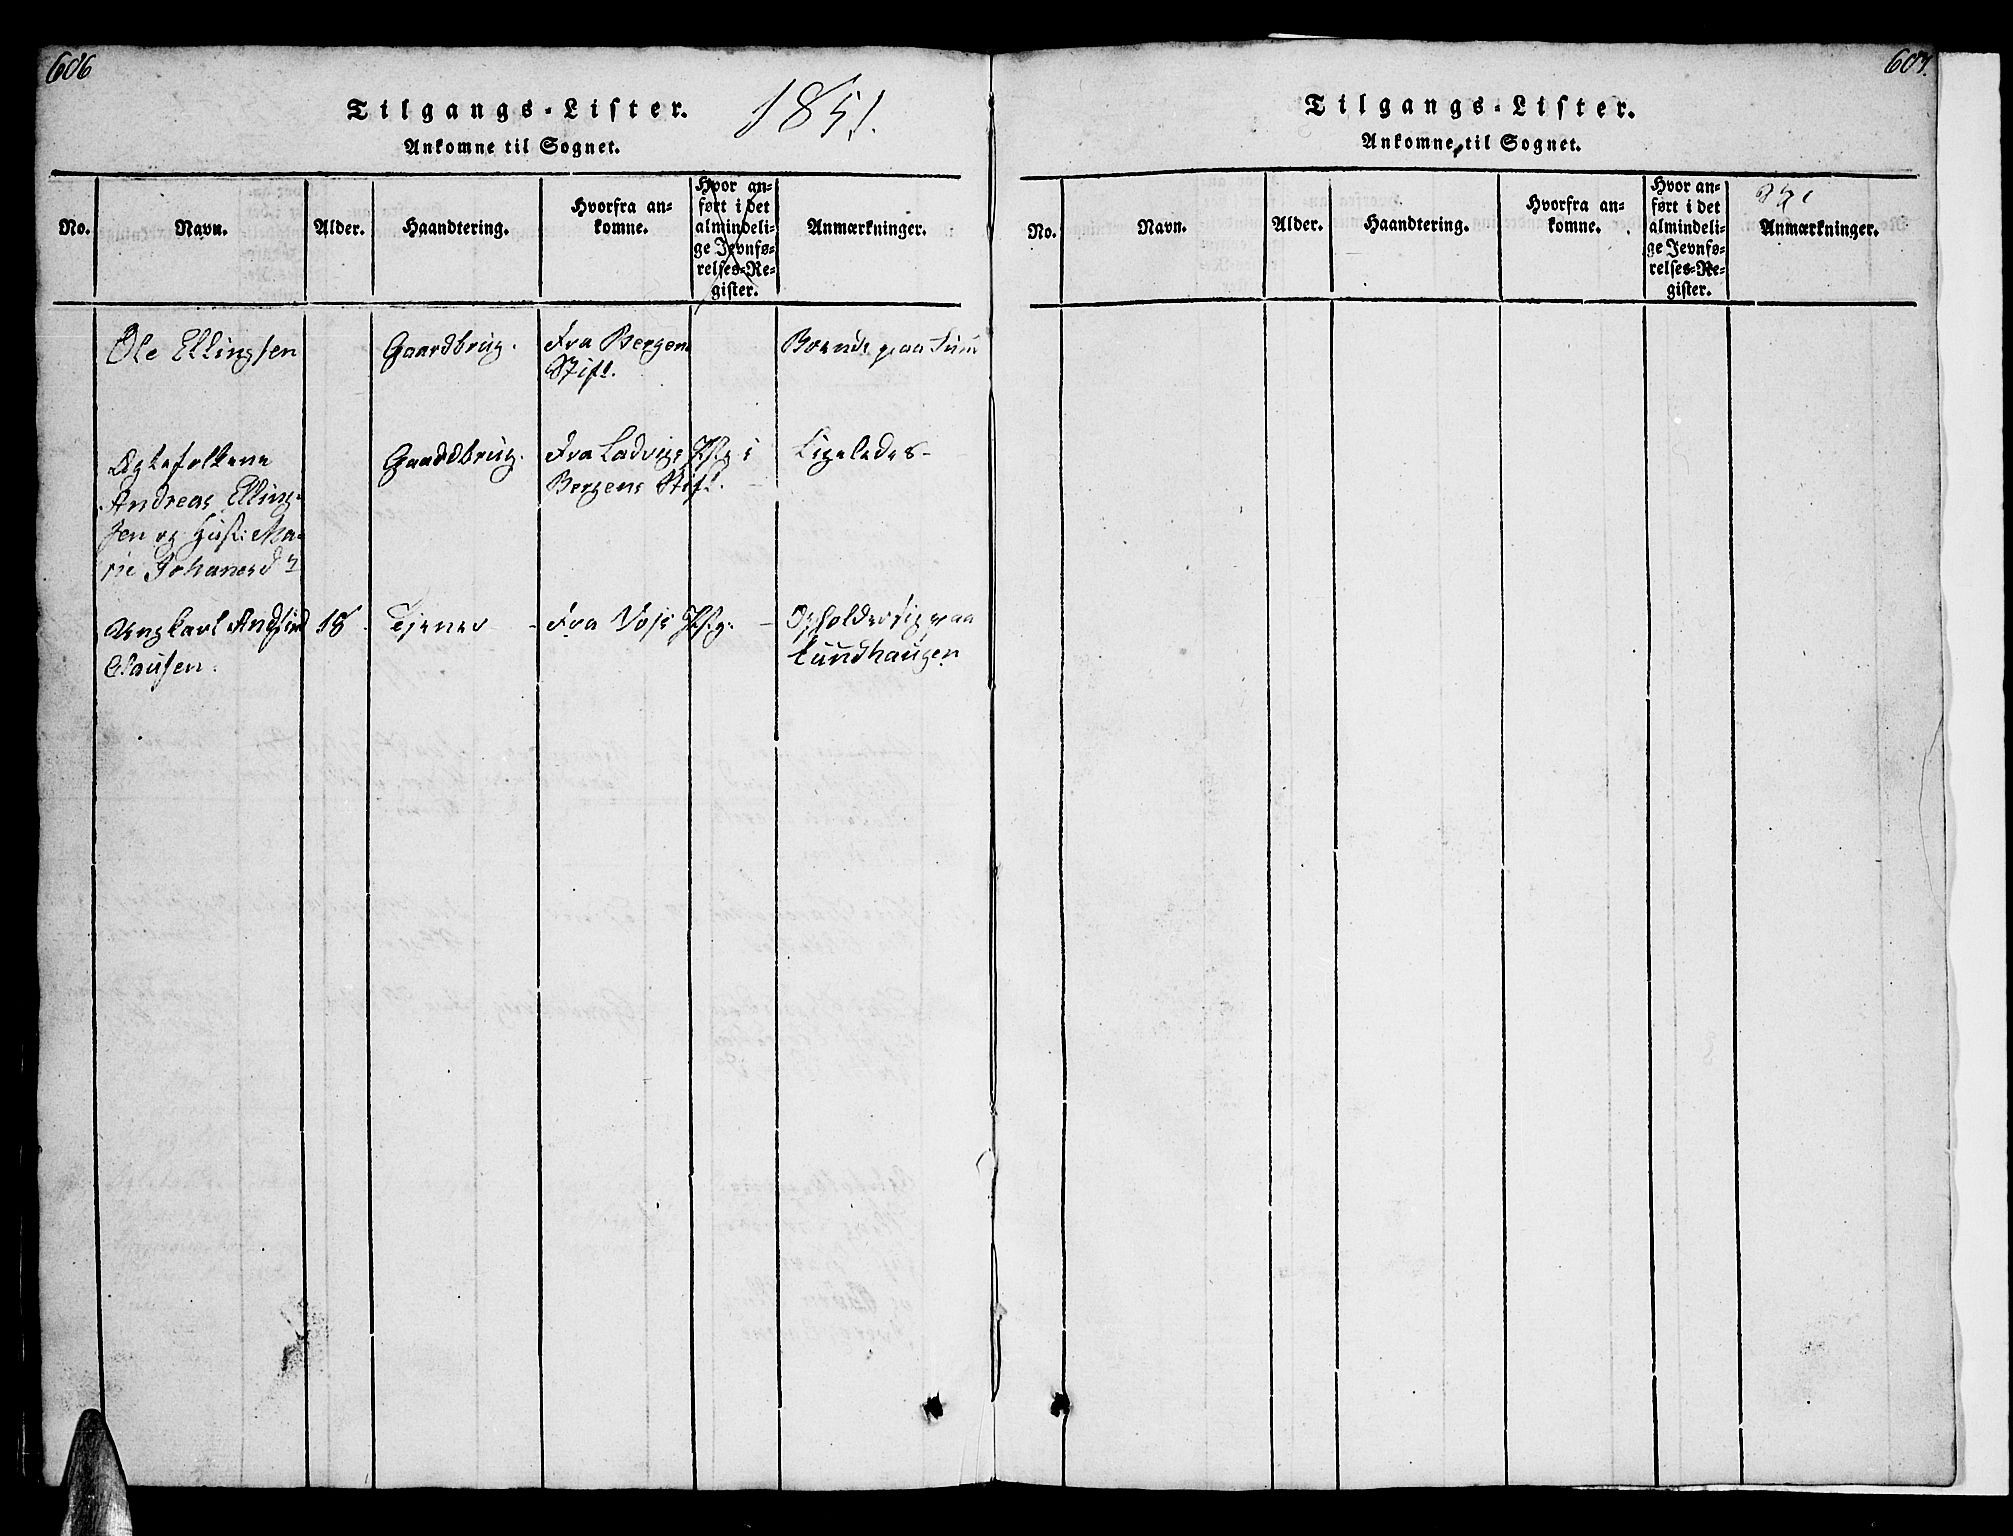 606
Tilgangs-Lister.
1851.
Ankomne til Sognet.
No.
Navn.
Alder.
Haandtering.
Hvorfra an-
komne.
Hvor an-
ført i det
almindeli-
ge Jevnfø-
relses-Re-
gister.
Anmærkninger.
Ole Ellingsen
Gaardbrug.
Fra Bergens
Stift.
Boende paa
Ægtefolkene
Andreas Elling-
sen og Hust: Ma-
rie Johanesd
Gaardbrug.
Fra Ladvigs Pstg i
Bergens Stift.
Ligeledes
Ungkarl
Clausen.
18
Tjener
Fra Vos Pstg.
Opholder sig paa
Lundhaugen
607.
Tilgangs-Lister.
Ankomne til Sognet.
No.
Navn.
Alder.
Haandtering.
Hvorfra an-
komne.
Hvor an-
ført i det
almindeli-
ge Jevnfø-
relses-Re-
gister.
Anmærkninger.